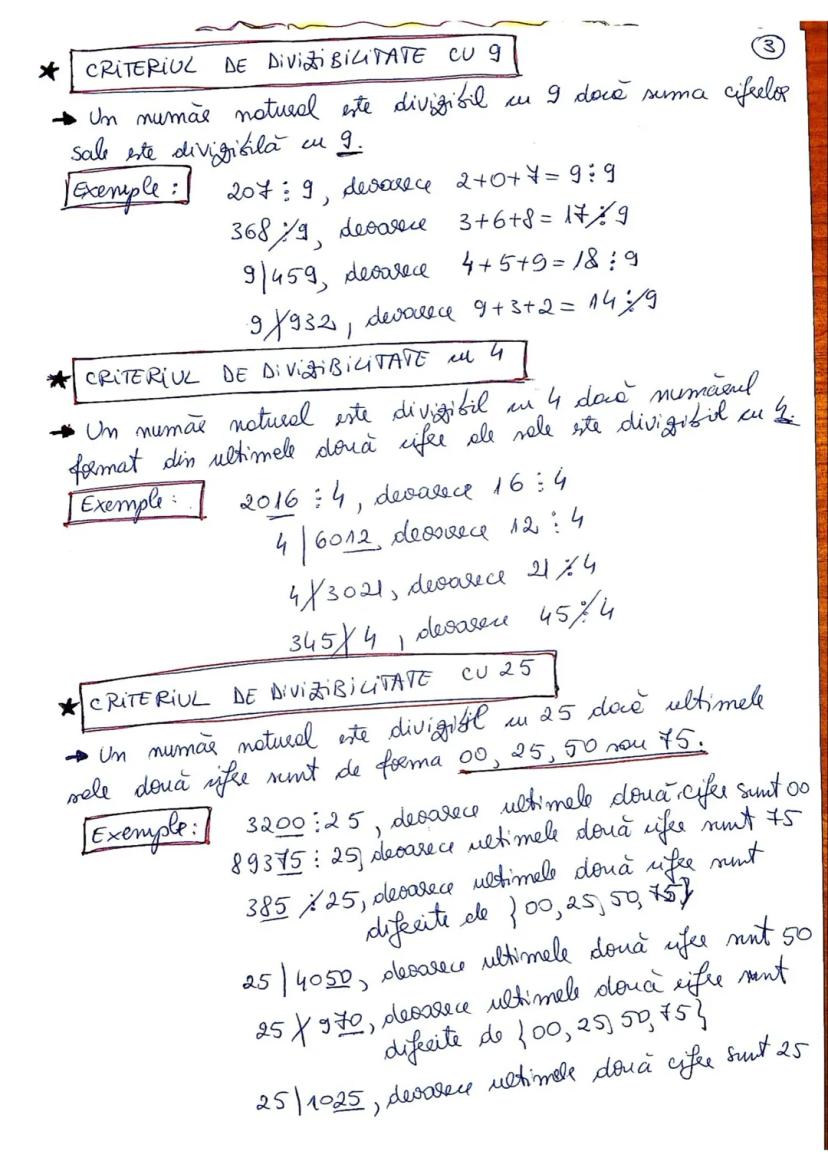 3
* CRITERIUL DE DIVIZIBILITATE CU 9
→ Un număr natural este divizibil cu 9 dacă suma cifrelor
sale este divizibilă cu 9.
Exemple: 207 ⋮ 9, deoarece 2+0+7=9 ⋮ 9
368 ⋮̸ 9, deoarece 3+6+8=17 ⋮̸ 9
9|459, deoarece 4+5+9=18 ⋮ 9
9∤932, deoarece 9+3+2=14 ⋮̸ 9
* CRITERIUL DE DIVIZIBILITATE cu 4
→ Un număr natural este divizibil cu 4 dacă numărul
format din ultimele două cifre ale sale este divizibil cu 4.
Exemple: 2016 ⋮ 4, deoarece 16 ⋮ 4
4|6012, deoarece 12 ⋮ 4
4∤3021, deoarece 21 ⋮̸ 4
345∤4, deoarece 45 ⋮̸ 4
* CRITERIUL DE DIVIZIBILITATE CU 25
→ Un număr natural este divizibil cu 25 dacă ultimele
sale două cifre sunt de forma 00, 25, 50 sau 75.
Exemple: 3200 ⋮ 25, deoarece ultimele două cifre sunt 00
89375 ⋮ 25, deoarece ultimele două cifre sunt 75
385 ⋮̸ 25, deoarece ultimele două cifre sunt
diferite de {00, 25, 50, 75}
25|4050, deoarece ultimele două cifre sunt 50
25∤970, deoarece ultimele două cifre sunt
diferite de {00, 25, 50, 75}
25|1025, deoarece ultimele două cifre sunt 25